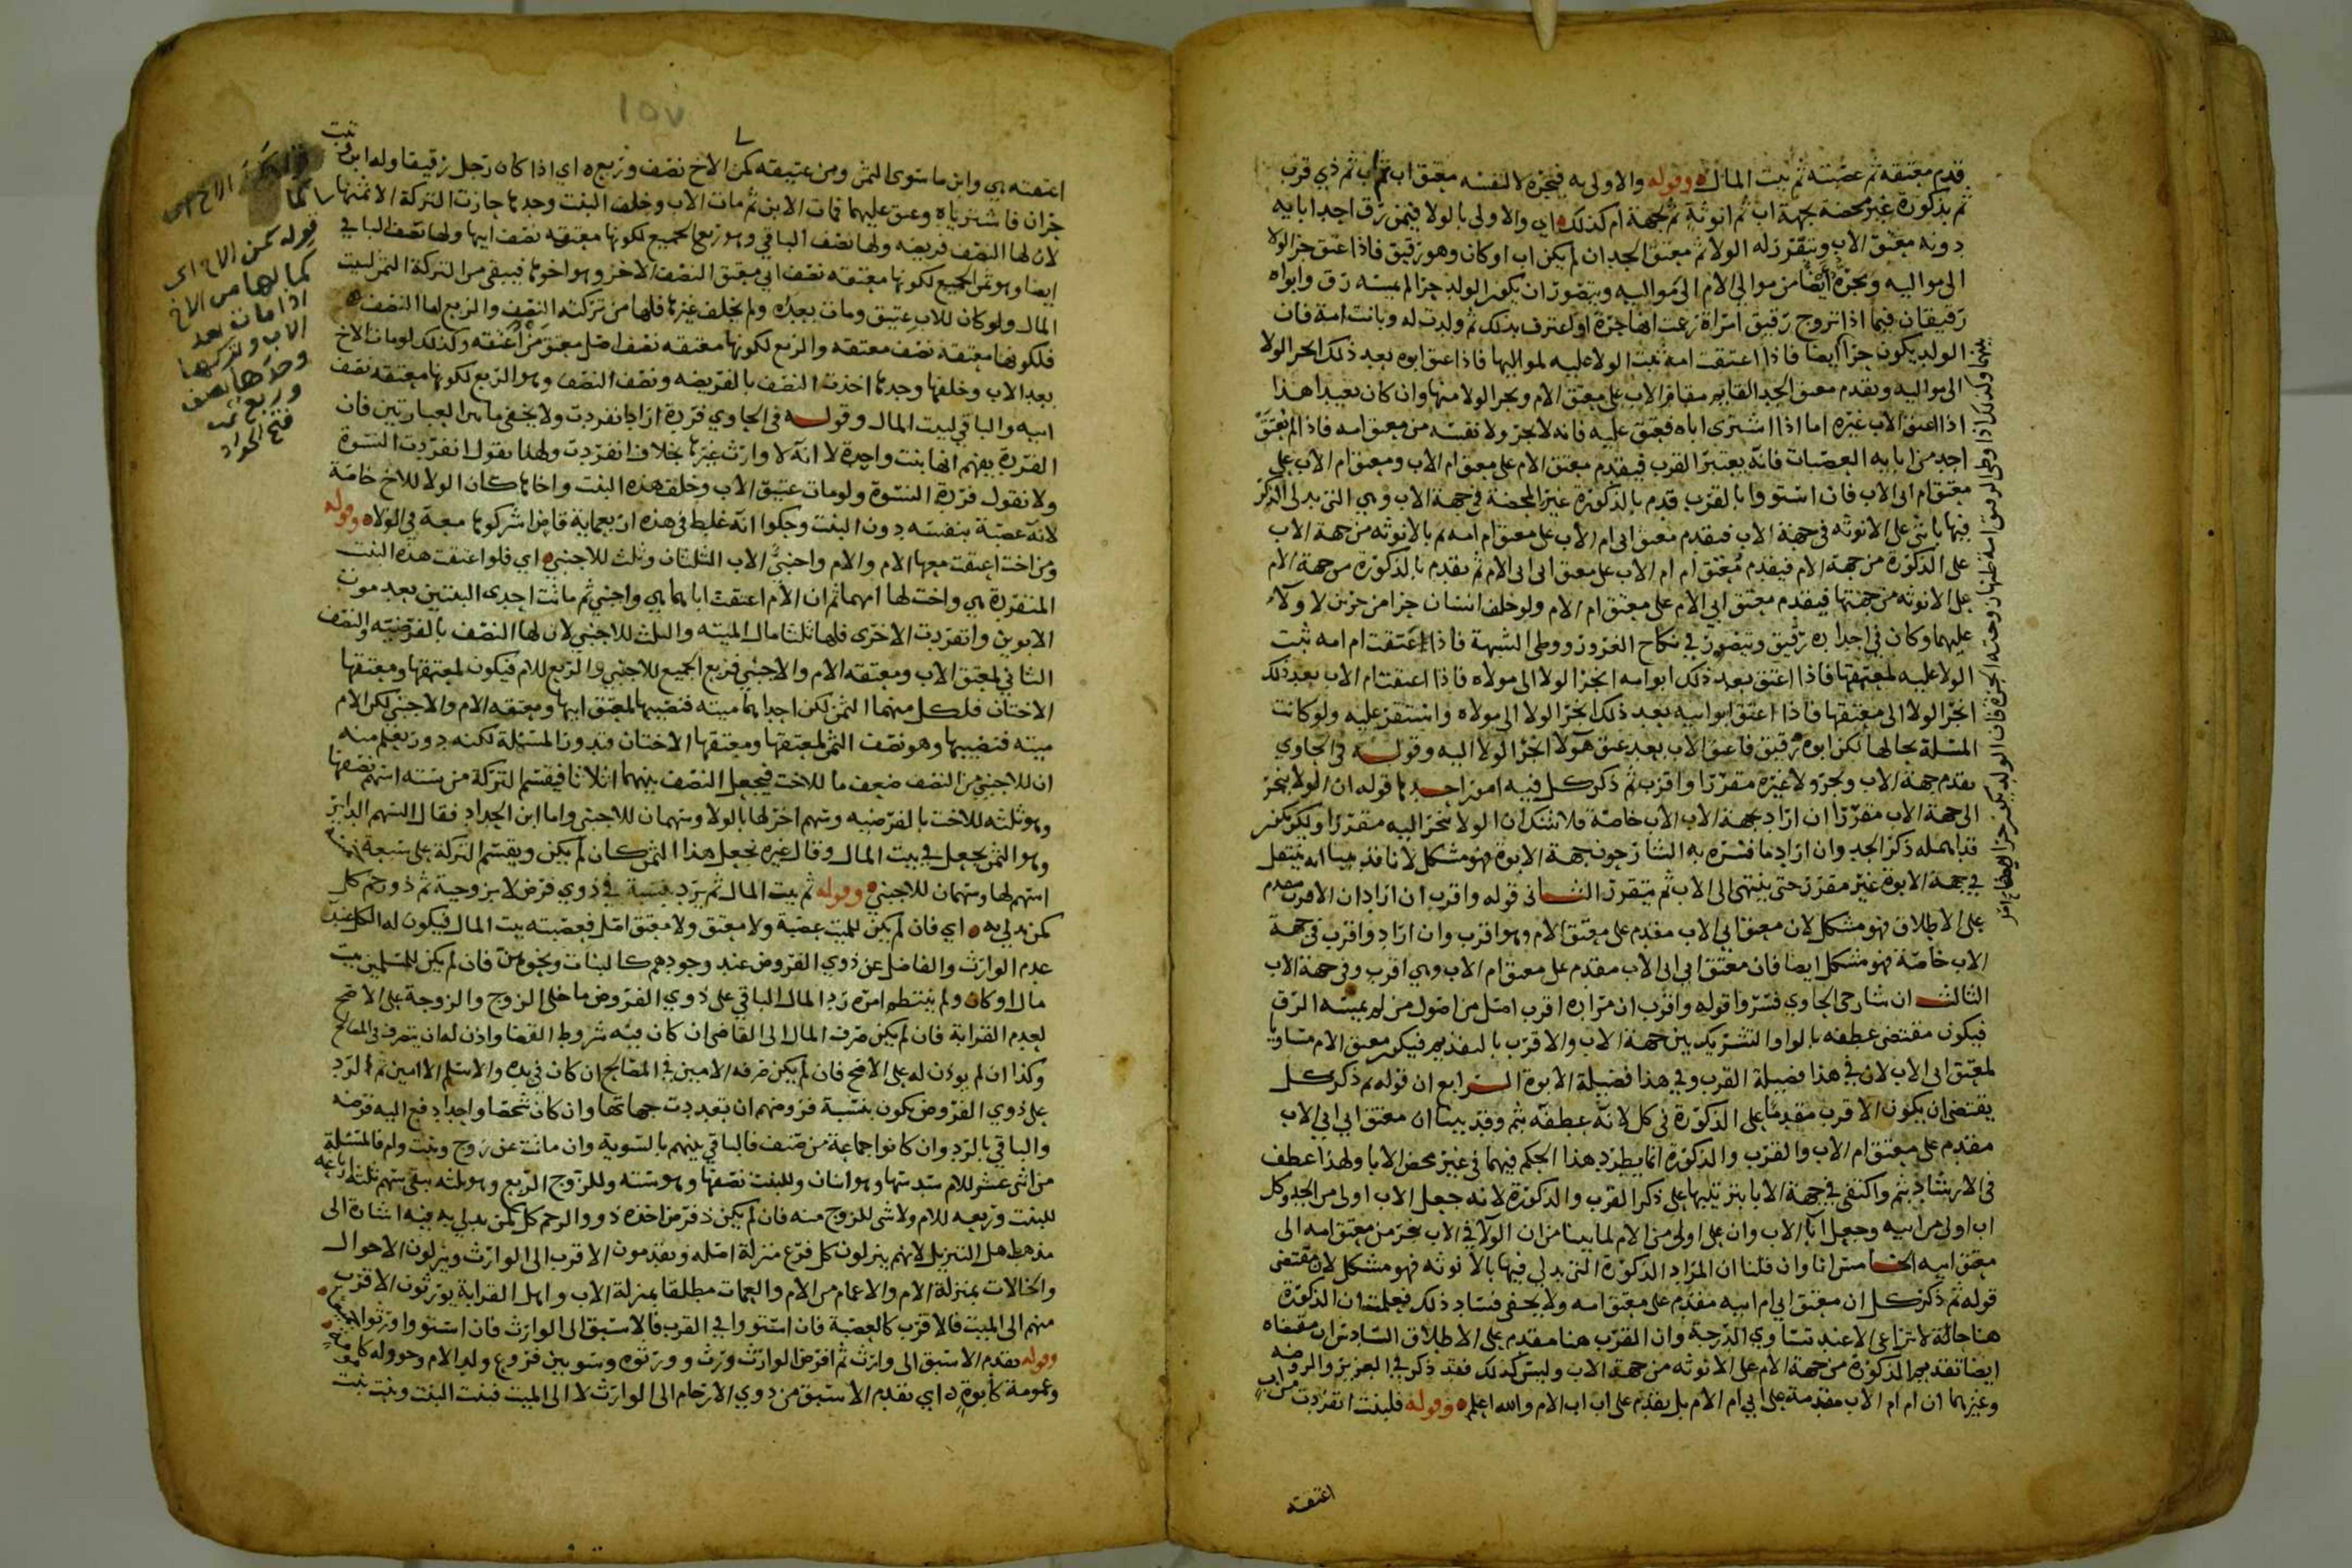 قدم معتقه ثم عصبته ثم بيت المال وقوله والاولى به فيجره لا لنفسه معتق اب ثم اب ثم ذي قرب
ثم بذكورة غير محضة بجهة اب ثم انوثة ثم بجهة ام كذلك اي والاولى بالولا فيمن رق احد ابايه
دونه معتق الاب ويتقرر له الولا ثم معتق الجد ان لم يكن اب او كان وهو رقيق فاذا اعتق جر الولا
الى مواليه ويجره ايضا من موالي الام الى مواليه ويتصور ان يكون الولد حرا لم يمسه رق وابواه
رقيقان فيما اذا تزوج رقيق امراة زعمت انها حرة او اعترف بذلك ثم ولدت له وبانت امة فان
الولد يكون حرا ايضا فاذا اعتقت امه ثبت الولا عليه لمواليها فاذا عتق ابوه بعد ذلك انجر الولا
الى مواليه ويقدم معتق الجد القايم مقام الاب على معتق الام ويجر الولا منها وان كان بعيدا هذا
اذا اعتق الاب غيره اما اذا اشترى اباه فعتق عليه فانه لا يجر ولا نفسه من معتق امه فاذا لم يعتق
احد من ابايه العصبات فانه يعتبر القرب فيقدم معتق الام على معتق ام الاب ومعتق ام الاب على
معتق ام ابي الاب فان استووا بالقرب قدم بالذكورة غير المحضة في جهة الاب وهي التي يدلى الذكر
فيها بانثى على الانوثه في جهة الاب فيقدم معتق ابي ام الاب على معتق ام امه ثم بالانوثه من جهة الاب
على الذكورة من جهة الام فيقدم معتق ام ام الاب على معتق ابي ابي الام ثم يقدم بالذكورة من جهة الام
على الانوثه من جهتها فيقدم معتق ابي الام على معتق ام الام ولو خلف انسان حرا من حرين لا ولا
عليهما وكان في اجداده رقيق ويتصور في نكاح الغرور ووطى الشبهة فاذا اعتقت ام امه ثبت
الولا عليه لمعتقها فاذا اعتق بعد ذلك ابو امه انجر الولا الى مولاه فاذا اعتقت ام الاب بعد ذلك
انجر الولا الى معتقها فاذا اعتق ابو ابيه بعد ذلك انجر الولا الى مولاه واستقر عليه ولو كانت
المسلة بحالها لكن ابوه رقيق فاعتق الاب بعد عتق هولا انجر الولا اليه وقوله في الحاوي
يقدم جهة الاب ويجر ولا غيره مقررا واقرب ثم ذكر كل فيه امور احدها قوله ان الولا ينجر
الى جهة الاب مقررا ان اراد بجهة الاب الاب خاصة فلا شك ان الولا ينجر اليه مقررا ولكن يكون
قد اهمله ذكر الجد وان اراد ما فسره به الشارحون جهة الابوة فهو مشكل لانا قد بينا انه ينتقل
في جهة الابوة غير مقرر حتى ينتهى الى الاب ثم يتقرر الثاني قوله واقرب ان اراد ان الاقرب مقدم
على الاطلاق فهو مشكل لان معتق ابي الاب مقدم على معتق الام وهو اقرب وان اراد واقرب في جهة
الاب خاصة فهو مشكل ايضا فان معتق ابي ابي الاب مقدم على معتق ام الاب وهي اقرب وفي جهة الاب
الثالث ان شارحي الحاوي فسروا قوله واقرب ان مراده اقرب اصل من اصول من لم يمسه الرق
فيكون مقتضى عطفه بالواو التشريك بين جهة الاب والاقرب بالتقديم فيكون معتق الام مساويا
لمعتق ابي الاب لان في هذا فضيلة القرب وفي هذا فضيلة الابوة الرابع ان قوله ثم ذكر كل
يقتضي ان يكون الاقرب مقدما على الذكورة في كل لانه عطفه بثم وقد بينا ان معتق ابي ابي الاب
مقدم على معتق ام الاب والقرب والذكورة انما يطرد هذا الحكم فيهما في غير محض الابا ولهذا عطف
في الارشاد بثم واكتفى في جهة الابا بترتيبها على ذكر القرب والذكورة لانه جعل الاب اولى من الجد وكل
اب اولى من ابيه وجعل ابا الاب وان على اولى من الام لما بينا من ان الولا في الاب ينجر من معتق امه الى
معتق ابيه الخامس انا وان قلنا ان المراد الذكورة التي يدلي فيها بالانوثه فهو مشكل لان مقتضى
قوله ثم ذكر كل ان معتق ابي ام ابيه مقدم على معتق امه ولا يخفى فساد ذلك فعلمت ان الذكورة
هنا حالة لا تراعى الا عند تساوي الدرجة وان القرب هنا مقدم على الاطلاق السادس ان مقتضاه
ايضا تقديم الذكورة من جهة الام على الانوثه من جهة الاب وليس كذلك فقد ذكر في العزيز والروضه
وغيرهما ان ام ام الاب مقدمة على ابي ام الام بل يقدم على اب اب الام والله اعلم وقوله فلبنت انفردت من اب
اعتقته
اعتقته هي وابن ما سوى الثمن ومن عتيقه كمن الاخ نصف وربع اي اذا كان رجل رقيقا وله ابن وبنت
حران فاشترياه وعتق عليهما فمات الابن ثم مات الاب وخلف البنت وحدها حازت التركة الا ثمنها
لان لها النصف فريضه ولها نصف الباقي وهو ربع الجميع لكونها معتقه نصف ابيها ولها نصف الباقي
ايضا وهو ثمن الجميع لكونها معتقه نصف ابي معتق النصف الاخر وهو اخوها فيبقى من التركة الثمن لبيت
المال ولو كان للاب عتيق ومات بعده ولم يخلف غيرها فلها من تركته النصف والربع لها النصف
فلكونها معتقه نصف معتقه والربع لكونها معتقه نصف اصل معتق من اعتقه وكذلك لو مات الاخ
بعد الاب وخلفها وحدها اخذت النصف بالفريضه ونصف النصف وهو الربع لكونها معتقه نصف
ابيه والباقي لبيت المال وقوله في الحاوي فردة اراد بانفردت ولا يخفى ما بين العبارتين فان
الفردة يفهم انها بنت واحدة لا انه لا وارث غيرها بخلاف انفردت ولهذا نقول انفردت النسوة
ولا نقول فردة النسوة ولو مات عتيق الاب وخلف هذه البنت واخاها كان الولا للاخ خاصة
لانه عصبة بنفسه دون البنت وحكوا انه غلط في هذه اربعماية قاض اشركوها معه في الولاء وقوله
ومن اخت اعتقت معها الام والام واجنبي الاب الثلثان وثلث للاجنبي اي فلو اعتقت هذه البنت
المنفردة هي واخت لها امهما ثم ان الام اعتقت اباهما هي واجنبي ثم ماتت احدى البنتين بعد موت
الابوين وانفردت الاخرى فلها ثلثا مال الميته والثلث للاجنبي لان لها النصف بالفرضيه والنصف
الثاني لمعتق الاب ومعتقه الام والاجنبي فربع الجميع للاجنبي والربع للام فيكون لمعتقها ومعتقها
الاختان فلكل منهما الثمن لكن احداهما ميته فنصيبها لمعتق ابيها ومعتقه الام والاجنبي لكن الام
ميته فنصيبها وهو نصف الثمن لمعتقها ومعتقها الاختان فتدور المسئلة لكنه دور يعلم منه
ان للاجنبي من النصف ضعف ما للاخت فيجعل النصف بينهما اثلاثا فيقسم التركة من ستة اسهم نصفها
وهو ثلثه للاخت بالفرضيه وسهم اخر لها بالولا وسهمان للاجنبي واما ابن الحداد فقال السهم الداير
وهو الثمن يجعل في بيت المال وقال غيره نجعل هذا الثمن كان لم يكن ويقسم التركة على سبعة
اسهم لها وسهمان للاجنبي وقوله ثم بيت المال ثم يرد بنسبة في ذوي فرض لا بزوجية ثم ذو رحم كل
كمن يدلي به اي فان لم يكن للميت عصبة ولا معتق ولا معتق اصل فعصبته بيت المال فيكون له الكل عند
عدم الوارث والفاضل عن ذوي الفروض عند وجودهم كالبنات ونحوهن فان لم يكن للمسلمين بيت
مال او كان ولم ينتظم امره رد المال الباقي على ذوي الفروض ما خلى الزوج والزوجة على الاصح
لعدم القرابة فان لم يكن صرف المال الى القاضي ان كان فيه شروط القضا واذن له ان يتصرف في المصالح
وكذا ان لم يوذن له على الاصح فان لم يكن صرفه الامين في المصالح ان كان في يده والا سلم الامين ثم الرد
على ذوي الفروض يكون بنسبة فروضهم ان تعددت جهاتها وان كان شخصا واحدا دفع اليه فرضه
والباقي بالرد وان كانوا جماعة من صنف فالباقي بينهم بالسوية وان ماتت عن زوج وبنت وام فالمسئلة
من اثنى عشر للام سدسها وهو اثنان وللبنت نصفها وهو سته وللزوج الربع وهو ثلثه يبقى سهم ثلثه ارباعه
للبنت وربعه للام ولا شي للزوج منه فان لم يكن ذ فرض اخذه ذوو الرحم كل كمن يدلي به فيه اشارة الى
مذهب اهل التنزيل لانهم ينزلون كل فرع منزلة اصله ويقدمون الاقرب الى الوارث وينزلون الاخوال
والخالات بمنزلة الام والاعمام من الام والعمات مطلقا بمنزلة الاب واهل القرابة يورثون الاقرب
منهم الى الميت فالاقرب كالعصبة فان استووا في القرب فالاسبق الى الوارث فان استووا ورثوا جميعا
وقوله يقدم الاسبق الى وارث ثم افرض الوارث ورث وورثوه وسو بين فروع ولد الام وخوولة كامومة
وعمومة كابوة اي يقدم الاسبق من ذوي الارحام الى الوارث لا الى الميت فبنت البنت وبنت بنت
قوله كمن الاخ اي
كما لها من الاخ
اذا مات بعد
الاب وتركها
وحدها نصف
وربع تمت
فتح الجواد